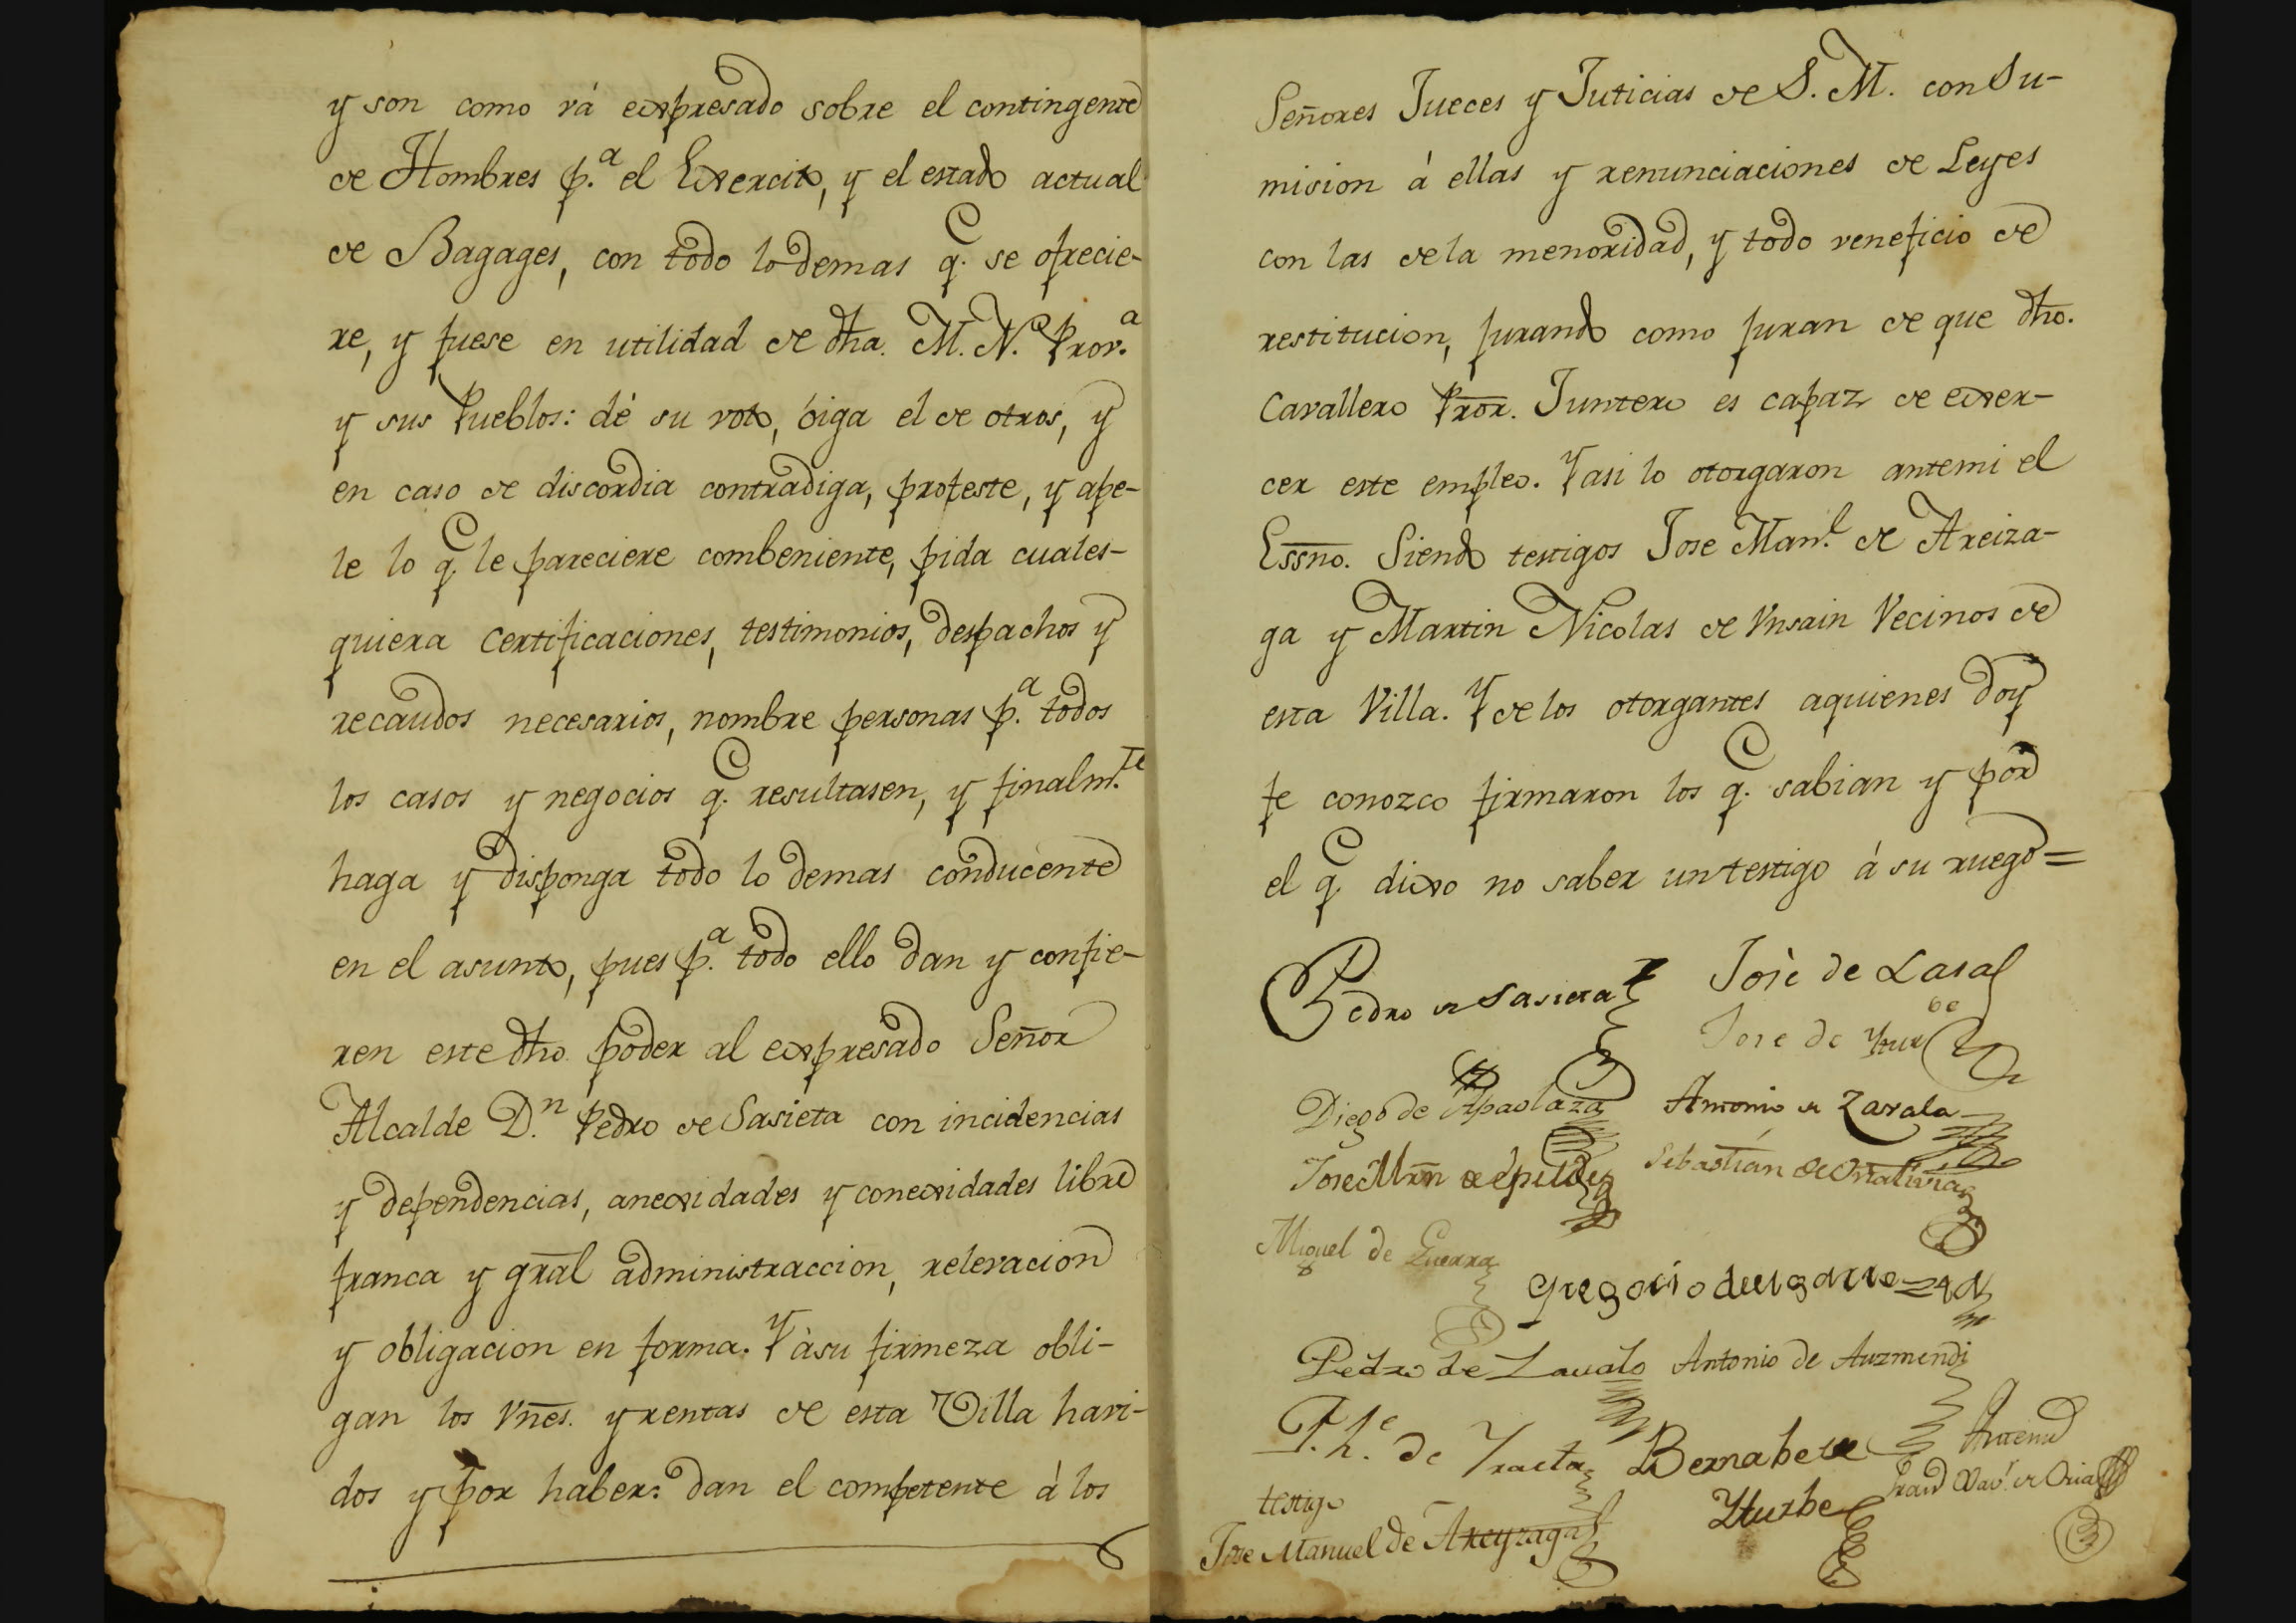 y son como vá expresado sobre el contingente
de Hombres p.ª el Exercito, y el estado actual
de Bagages, con todo lo demas q. se ofrecie-
re, y fuese en utilidad de dha. M. N. Prov.ª
y sus Pueblos: dé su voto, óiga el de otros, y
en caso de discordia contradiga, proteste, y ape-
le lo q. le pareciere combeniente, pida cuales-
quiera Certificaciones, testimonios, despachos y
recaudos necesarios, nombre personas p.ª todos
los casos y negocios q. resultasen, y finalm.te
haga y disponga todo lo demas conducente
en el asunto, pues p.ª todo ello dan y confie-
ren este dho. poder al expresado Señor
Alcalde D.n Pedro de Sasieta con incidencias
y dependencias, anexidades y conexidades libre
franca y gral administraccion, relevacion
y obligacion en forma. Y àsu firmeza obli-
gan los vnes. y rentas de esta Villa havi-
dos y por haber: dan el competente à los
Señores Jueces y Juticias de S. M. con Su-
mision á ellas y renunciaciones de Leyes
con las dela menoridad, y todo veneficio de
restitucion, jurando como juran de que dho.
Cavallero Pror. Juntero es capaz de exer-
cer este empleo. Y asi lo otorgaron antemi el
Essno. Siendo testigos Jose Man.l de Areiza-
ga y Martin Nicolas de Vnsain Vecinos de
esta Villa. Y de los otorgantes aquienes doy
fe conozco firmaron los q. sabian y por
el q. dixo no saber un testigo á su ruego=
Pedro de Sasieta Josè de Lasa
Jose de Yturbe
Diego de Apaolaza Antonio de Zavala
Jose Mrn de Epelde Sebastian de
Miguel de Guerra
Gregorio de
Pedro de Zavala Antonio de Auzmendi
J. h.e de Yraeta Bernabe de Antemi
Yturbe Fran.co Xav.r de Oria
testigo
Jose Manuel de Areyzaga